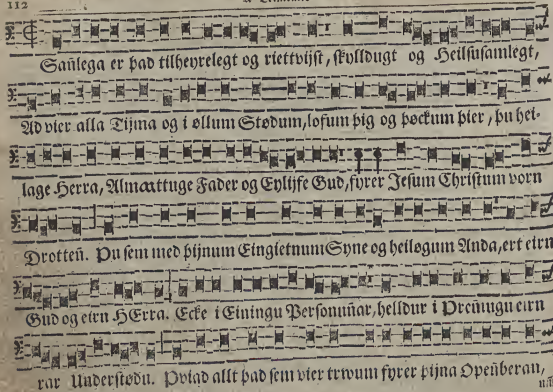 112
Sañlega er þad tilheyrelegt og riettvijst, skylldugt og Heilsusamlegt,
Ad vier alla Tijma og i øllum Stødum, lofum þig og þøckum þier, þu hei-
lage Herra, Almættuge Fader og Eylijfe Gud, fyrer Jesum Christum vorn
Drotteñ. Þu sem med þijnum Eingietnum Syne og heiløgum Anda, ert eirn
Gud og eirn HErra. Ecke i Einingu Persónuñar, helldur i Þreñingu eirn
rar Understødu. Þviad allt þad sem vier trwum fyrer þijna Opeñberan,